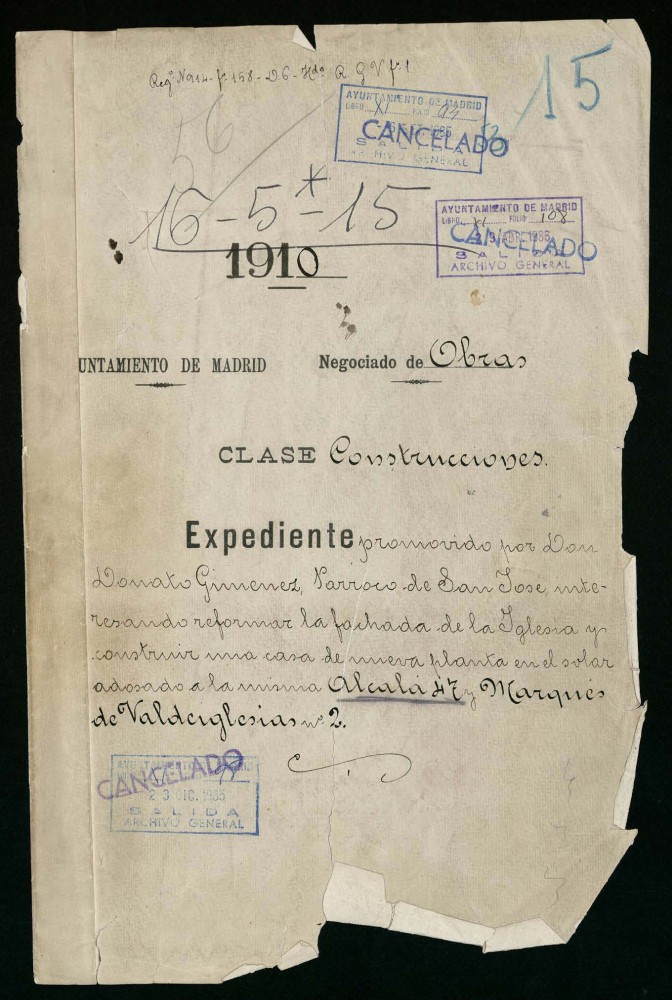 15
AYUNTAMIENTO DE MADRID
LIBRO XI FOLIO 94
CANCELADO
SALIDA
ARCHIVO GENERAL
56
16-5*-15
AYUNTAMIENTO DE MADRID
LIBRO XI FOLIO 108
CANCELADO
ABR. 1986
SALIDA
ARCHIVO GENERAL
1910
UNTAMIENTO DE MADRID Negociado de Obras
CLASE Construcciones.
Expediente promovido por Don
Donato Gimenez, Parroco de San Jose, inte-
resando reformar la fachada de la Iglesia y
construir una casa de nueva planta en el solar
adosado a la misma Alcalá 47 y Marqués
de Valdeiglesias nº 2.
CANCELADO
23 DIC. 1985
SALIDA
ARCHIVO GENERAL